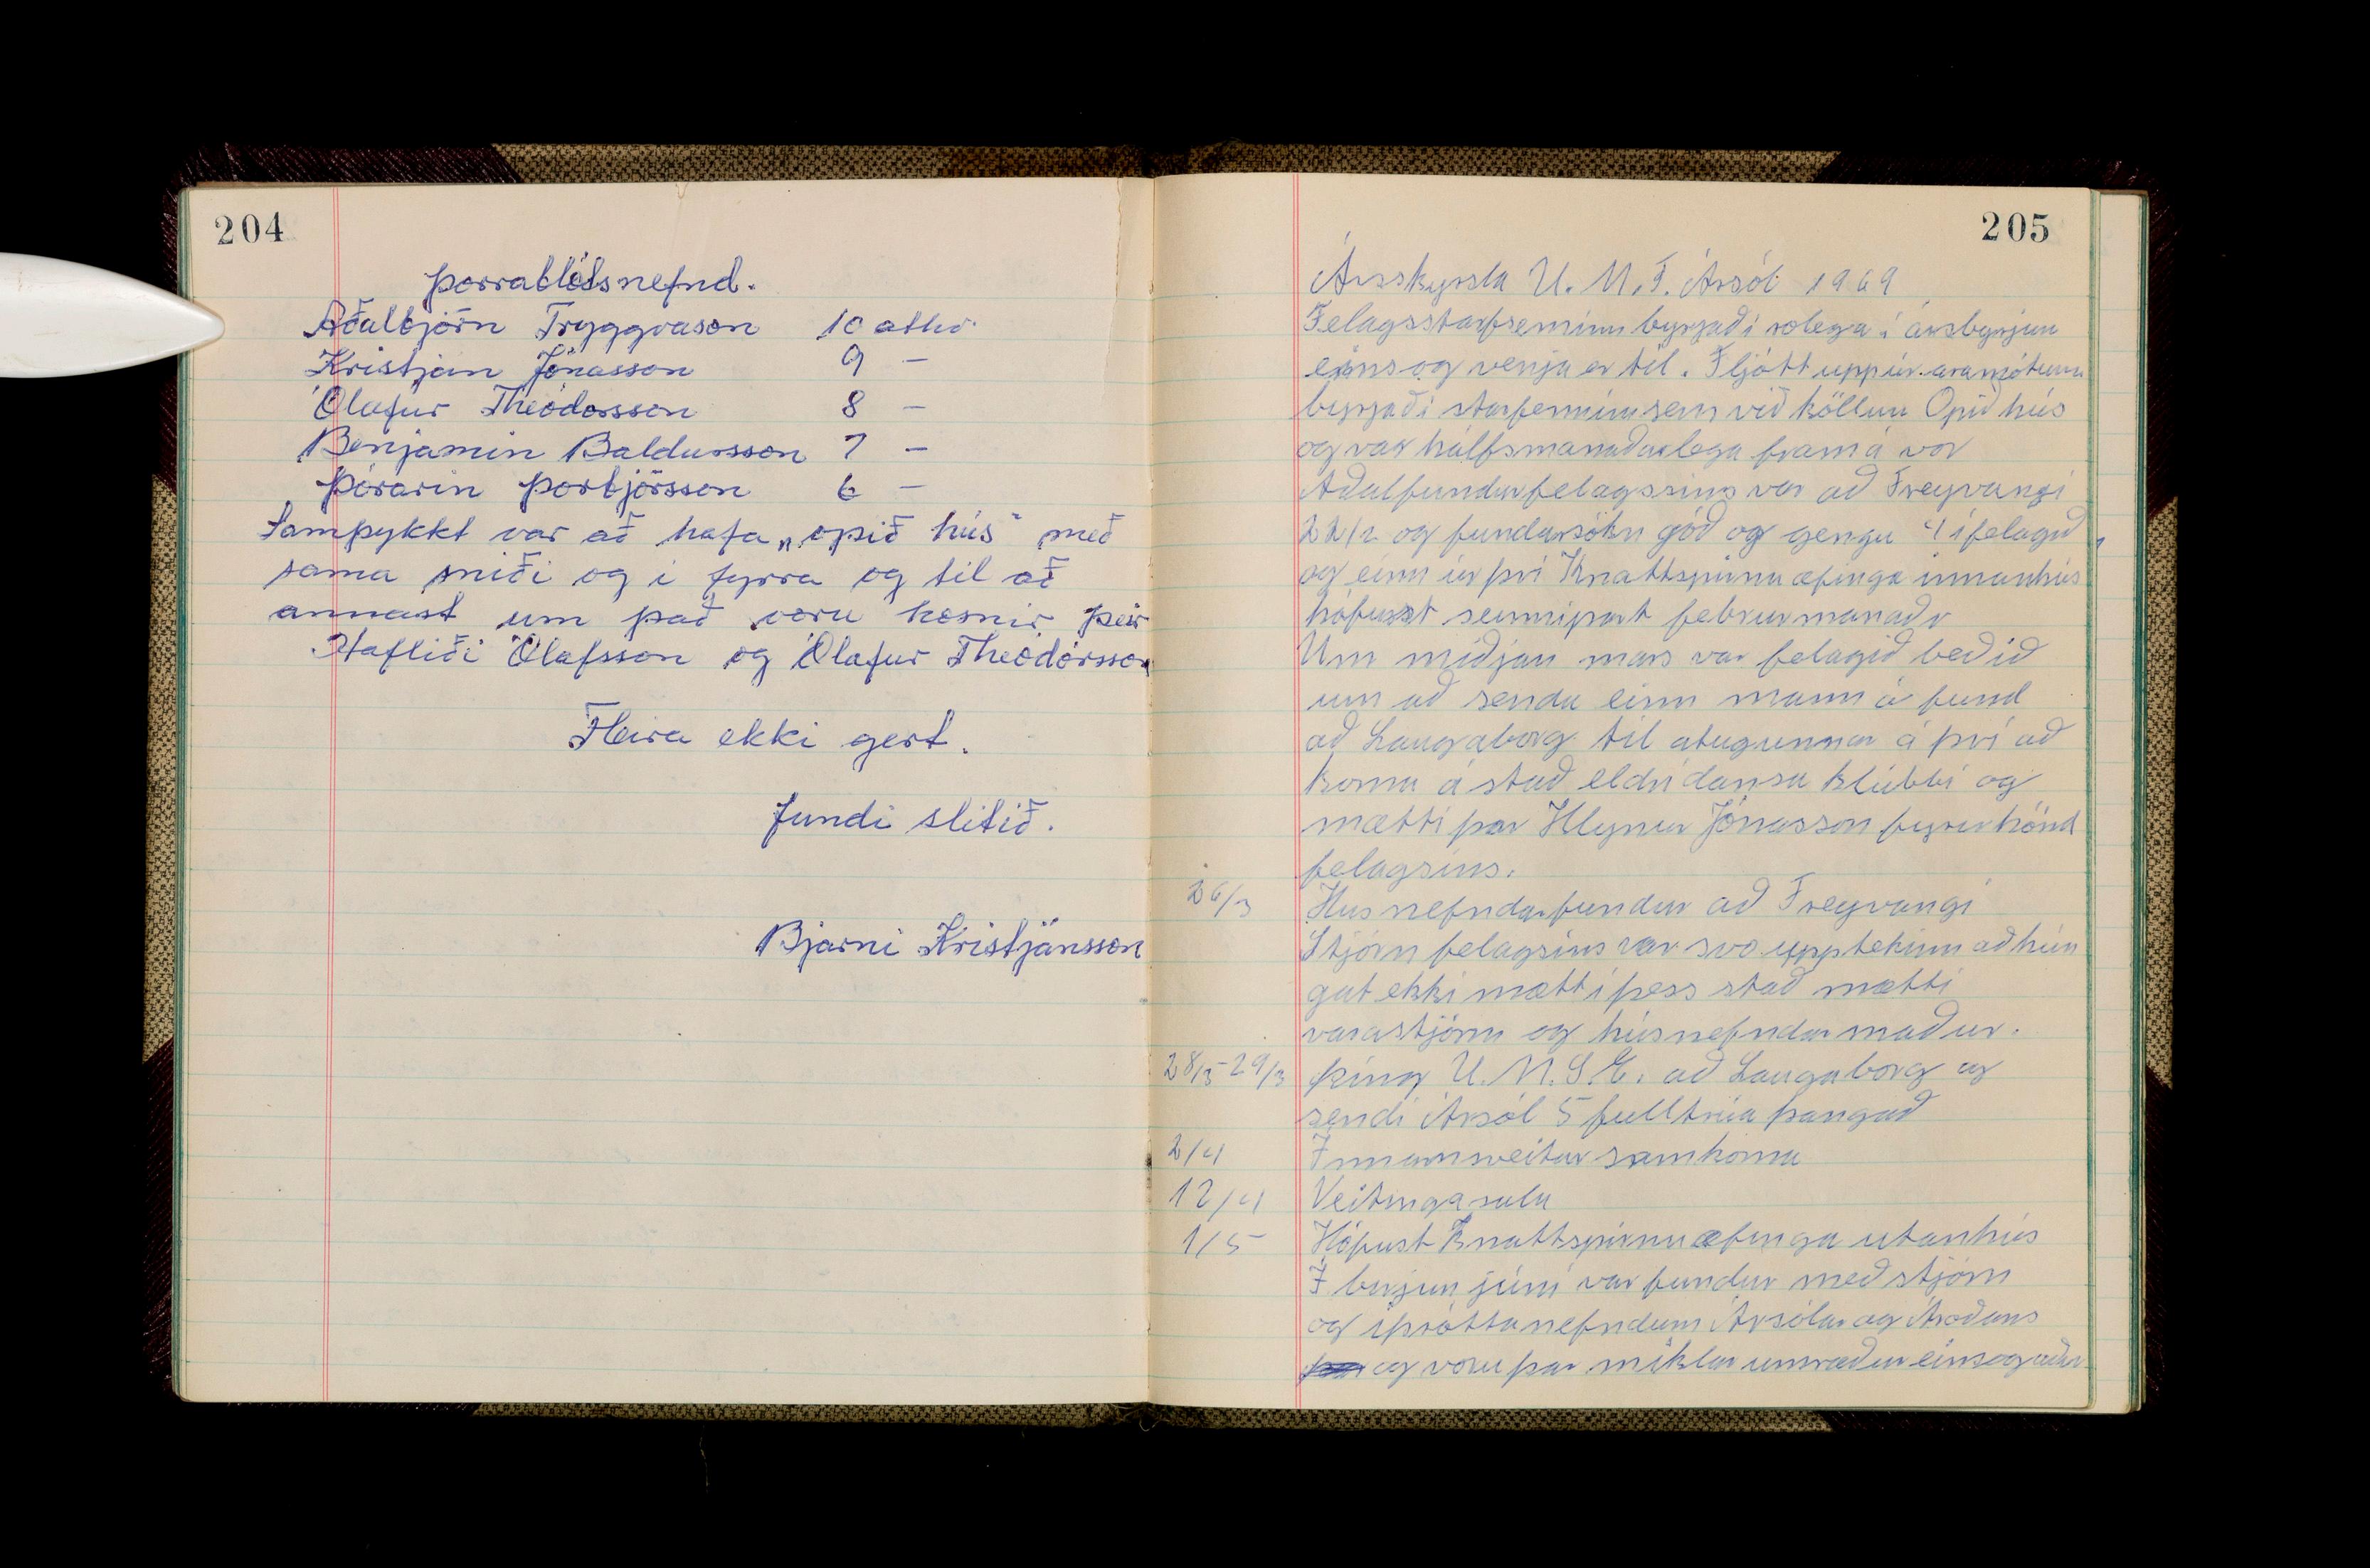 204
Þorrablótsnefnd.
Aðalbjörn Tryggvason 10 atkv.
Kristján Jónasson 9 —
Ólafur Theódórsson 8 —
Benjamín Baldursson 7 —
Þórarin Þorbjörsson 6 —
Samþykkt var að hafa „opið hús“ með
sama sniði og í fyrra og til að
annast um það voru kosnir þeir
Hafliði Ólafsson og Ólafur Theódórsson
Fleira ekki gert.
fundi slitið.
Bjarni Kristjánsson
205
Ársskyrsla U. M. F. Ársól 1969
Felagsstarfseminn byrjaði rolega í ársbyrjun
eins og venja er til. Fljótt uppúr aramótum
byrjaði starfseminn sem við köllum Opið hús
og var hálfsmanaðarlega framá vor
Aðalfundur felagsins var að Freyvangi
22/2 og fundarsókn góð og gengu 4 í felagið
og einn úr því Knattspirnu æfinga innanhús
hófusst seinnipart februrmanaðr
Um miðjan mars var felagið beðið
um að senda einn mann á fund
að Laugaborg til atugunnar á því að
koma á stað eldridansa klúbbi og
mætti þar Hlynur Jónasson fyrir hönd
felagsins.
26/3 Husnefndarfundur að Freyvangi
Stjórn felagsins var svo upptekinn að hún
gat ekki mætt í þess stað mætti
varastjórn og húsnefndar maður.
28/3-29/3 þing U. M. S. E. að Laugaborg og
sendi Ársól 5 fulltrúa þangað
2/4 Innansveitar samkoma
12/4 Veitingasala
1/5 Hófust Knattspirnu æfinga utanhús
Í birjun júní var fundur með stjórn
og íþróttanefndum Ársólar og Árroðans
og voru þar miklar umræður einsog aður